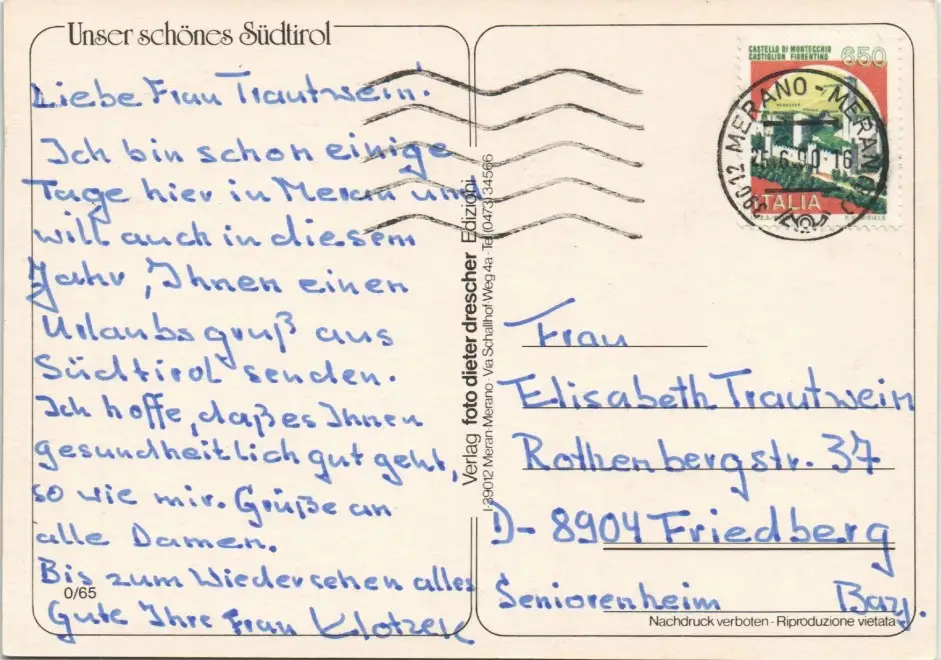 Unser schönes Südtirol
Liebe Frau Trautwein!
Ich bin schon einige
Tage hier in Meran und
will auch in diesem
Jahr, Ihnen einen
Urlaubsgruß aus
Südtirol senden.
Ich hoffe, daß es Ihnen
gesundheitlich gut geht,
so wie mir. Grüße an
alle Damen.
Bis zum Wiedersehen alles
Gute Ihre Frau Klotzek
0/65
Verlag foto dieter drescher Edizioni
I-39012 Meran-Merano · Via Schallhof-Weg 4a · Tel. (0473) 34566
CASTELLO DI MONTECCHIO
CASTIGLION FIORENTINO
650
ITALIA
39012 MERANO - MERANO
25.6.90-16
Frau
Elisabeth Trautwein
Rothenbergstr. 37
D-8904 Friedberg
Seniorenheim Bay.
Nachdruck verboten · Riproduzione vietata